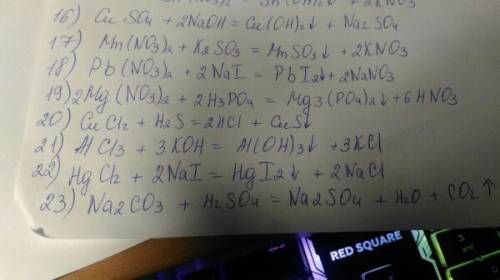 Sn(OH)2↓ + 2KNO3
16) CuSO4 + 2NaOH = Cu(OH)2↓ + Na2SO4
17) Mn(NO3)2 + K2SO3 = MnSO3↓ + 2KNO3
18) Pb(NO3)2 + 2NaI = PbI2↓ + 2NaNO3
19) 2Mg(NO3)2 + 2H3PO4 = Mg3(PO4)2↓ + 6HNO3
20) CuCl2 + H2S = 2HCl + CuS↓
21) AlCl3 + 3KOH = Al(OH)3↓ + 3KCl
22) HgCl2 + 2NaI = HgI2↓ + 2NaCl
23) Na2CO3 + H2SO4 = Na2SO4 + H2O + CO2↑
RED SQUARE